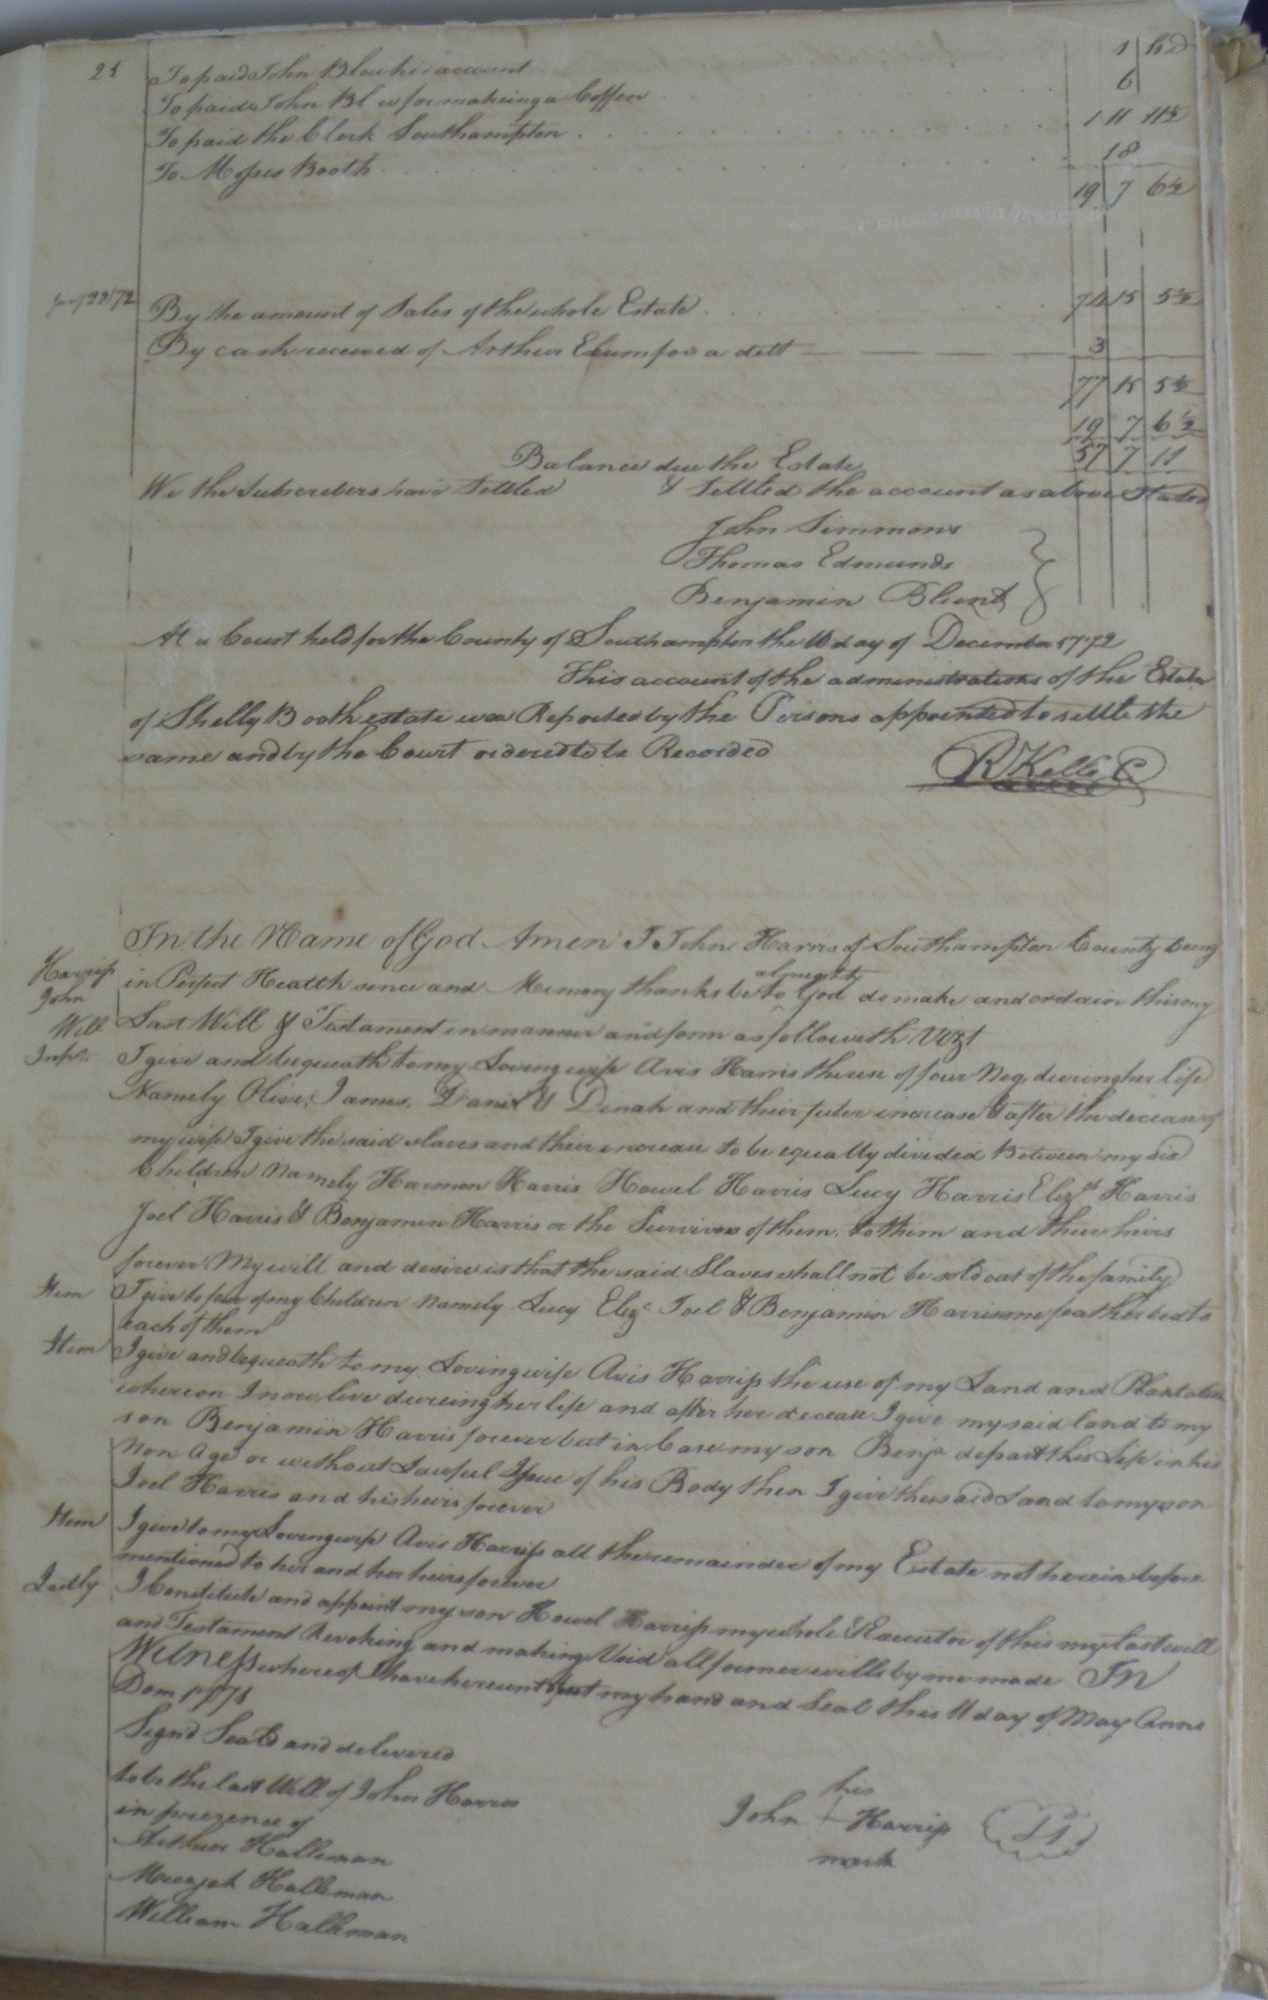 25 To paid John Blow his account 1 10
To paid John Bl w for makeing a Coffen 6
To paid the Clerk Southampton 1 11 11½
To Moses Booth 18
19 7 6½
Jany 29 72 By the amount of Sales of the whole Estate 74 15 5½
By cash received of Arthur Exum for a debt 3
77 15 5½
19 7 6½
Balance due the Estate 57 7 11
We the Subscribers have Settled & Settled the account as above Stated
John Simmons
Thomas Edmunds
Benjamin Blunt
At a Court held for the County of Southampton the 10 day of December 1772
This account of the administrations of the Estate
of Shelly Booth estate was Reported by the Persons appointed to settle the
same and by the Court ordered to be Recorded
R Kello C
In the Name of God Amen I John Harris of Southampton County being
Harris in Perfect Health sence and Memory thanks be to almighty God do make and ordain this my
John
Will Last Will & Testament in manner and form as followeth Vizt
Imps I give and bequeath to my Loving wife Avis Harris the use of four Neg. dureing her life
Namely Olive, James, Daniel & Dinah and their futer increase & after the decease of
my wife I give the said slaves and their increase to be equally divided Between my six
Children Namely Harmon Harris Howel Harris Lucy Harris Elizt Harris
Joel Harris & Benjamin Harris or the Survivors of them. to them and their heirs
forever My will and desire is that the said Slaves shall not be sold out of the family
Item I give to four of my Children Namely Lucy Eliz Joel & Benjamin Harris one feather bed to
each of them
Item I give and bequeath to my Loving wife Avis Harris the use of my Land and Plantation
whereon I now live dureing her life and after her decease I give my said land to my
son Benjamin Harris forever but in Case my son Benja depart this Life in his
Non Age or without Lawful Issue of his Body then I give the said Land to my son
Joel Harris and his heirs forever
Item I give to my Loving wife Avis Harris all the remainder of my Estate not herein before
mentioned to her and her heirs forever
Lastly I Constitute and appoint my son Howel Harris my whole Executor of this my last will
and Testament Revoking and making Void all former wills by me made In
Witness whereof I have hereunto put my hand and Seal this 11 day of May Anno
Dom 1771
Signd Seald and delivered
to be the last Will of John Harris
in presence of
his
John + Harris LS
mark
Arthur Halleman
Micajah Halleman
William Halleman